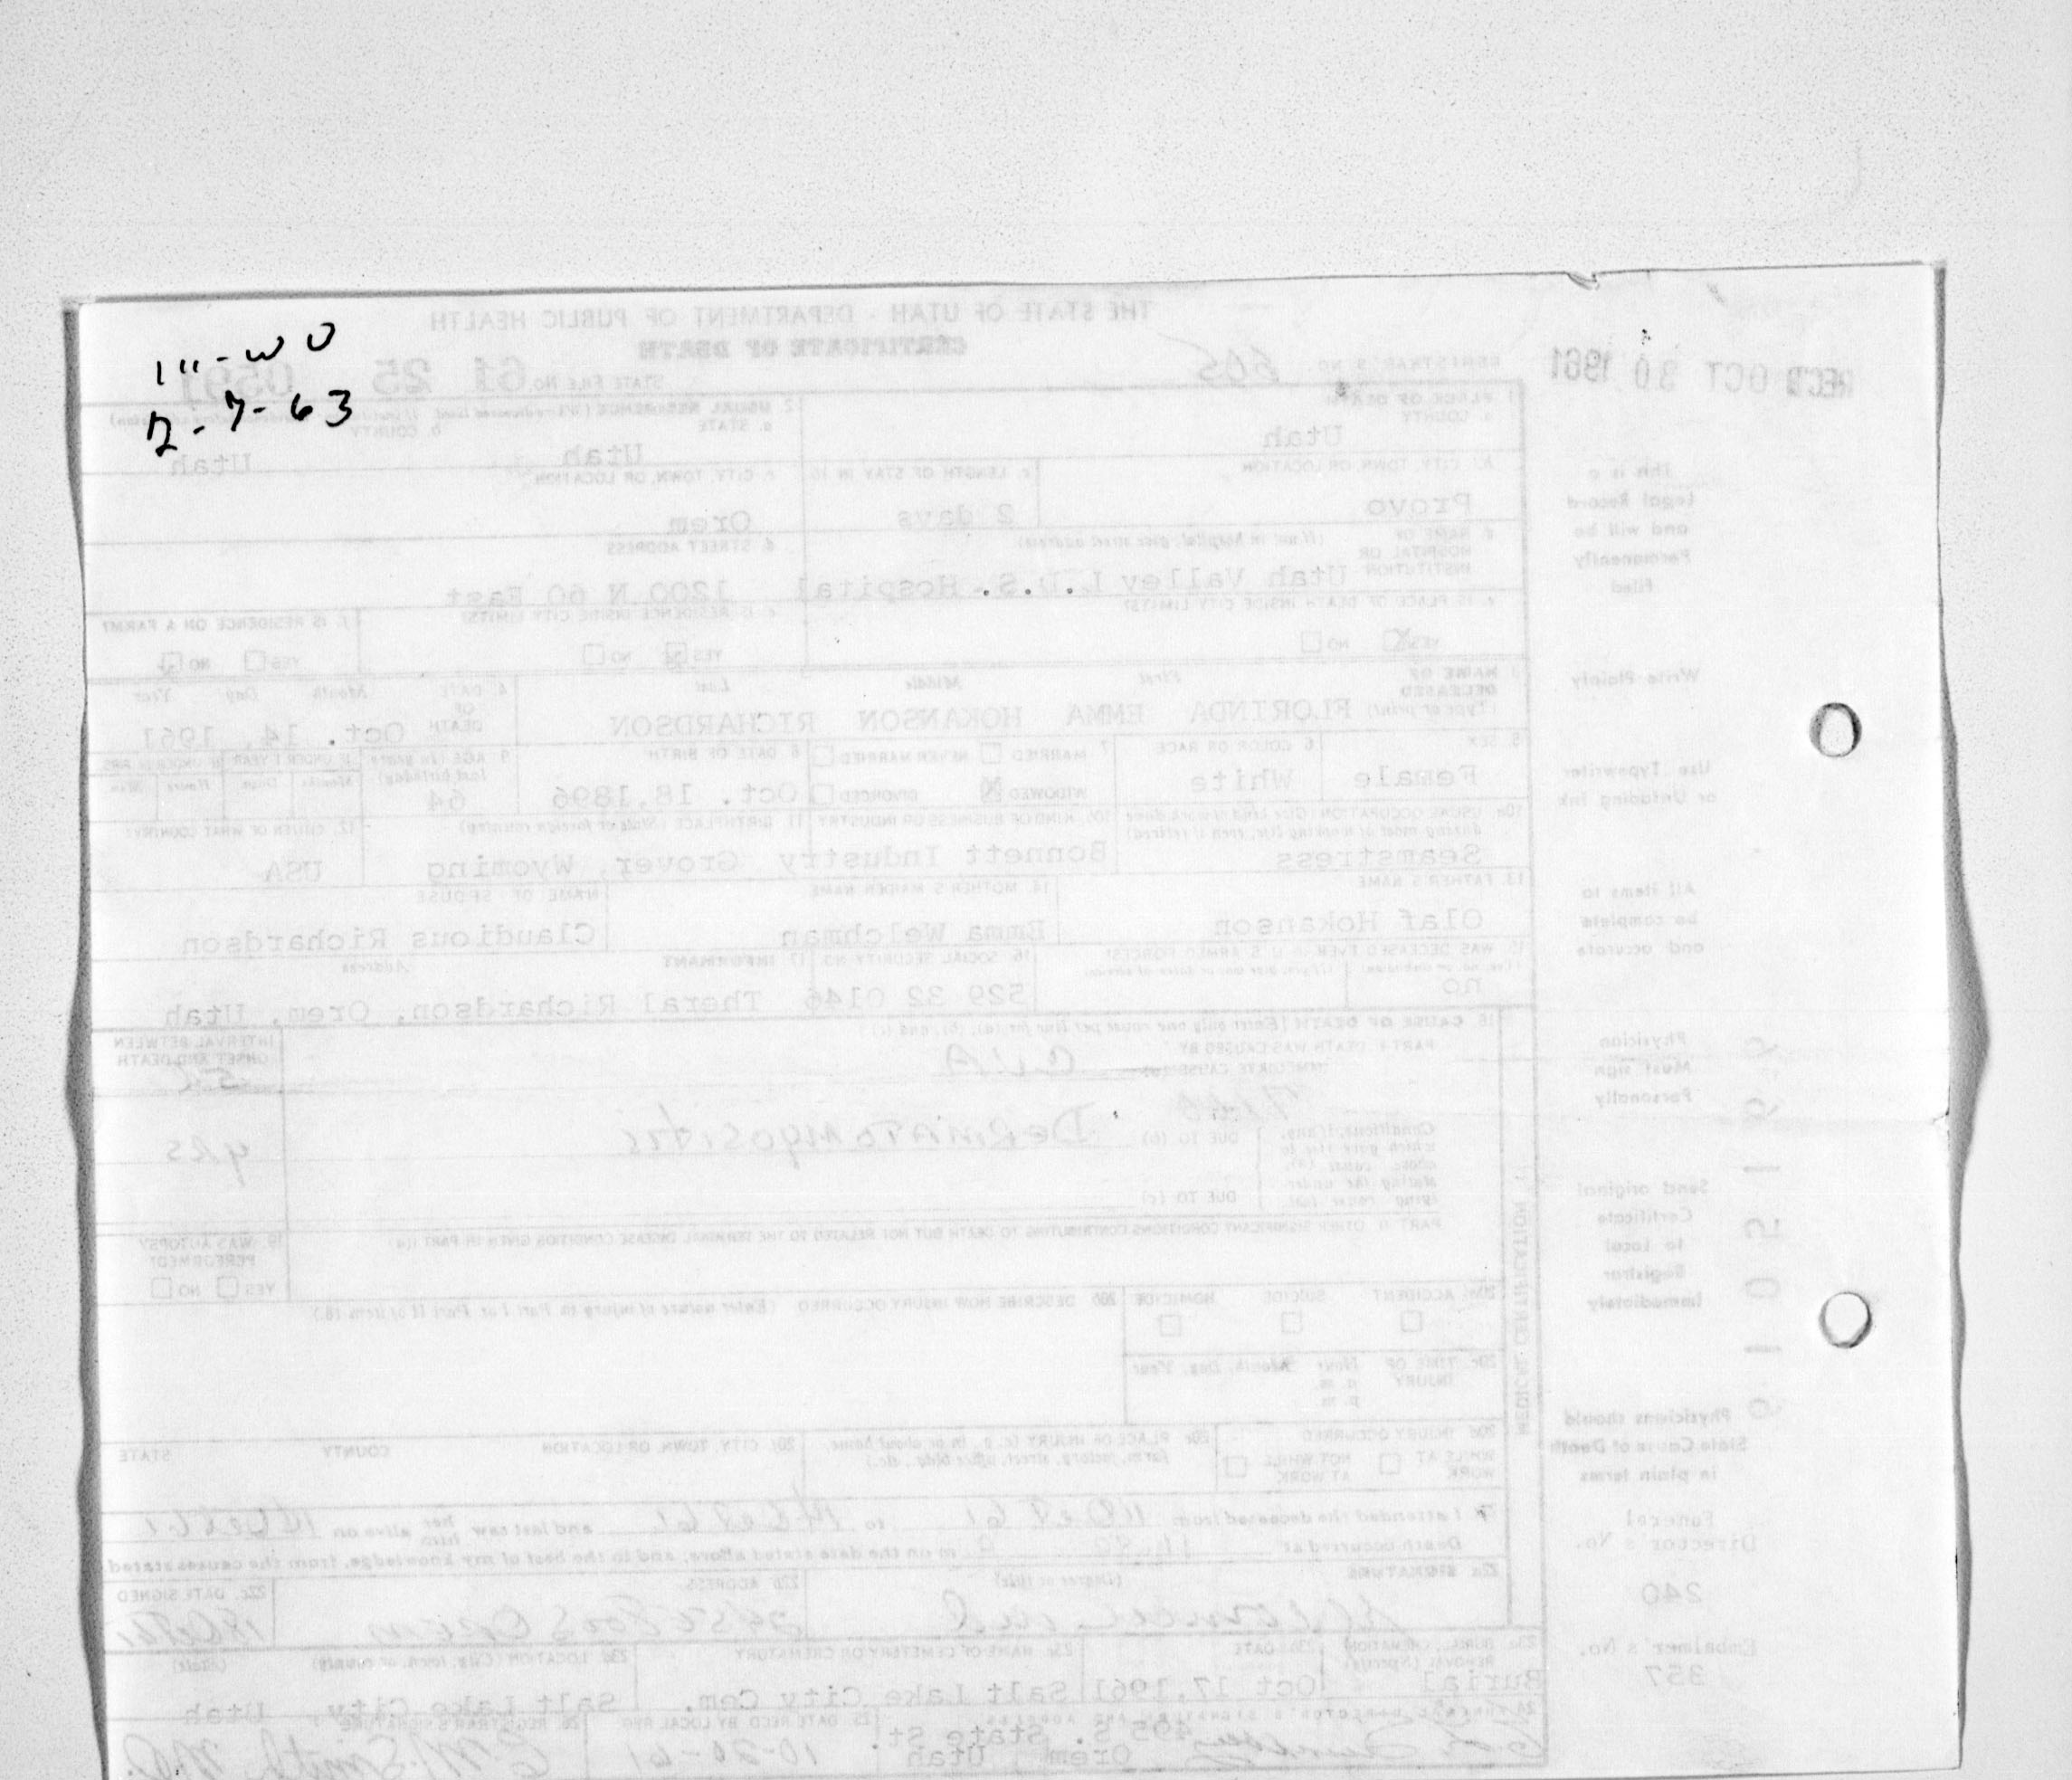 1" - W U
12-7-63
THE STATE OF UTAH - DEPARTMENT OF PUBLIC HEALTH
CERTIFICATE OF DEATH
REC'D OCT 30 1961
REGISTRAR'S NO. 605
STATE FILE NO. 61 25 0591
1. PLACE OF DEATH
a. COUNTY
Utah
2. USUAL RESIDENCE
a. STATE
Utah
b. COUNTY
Utah
b. CITY, TOWN, OR LOCATION
Provo
c. LENGTH OF STAY IN 1b
2 days
c. CITY, TOWN, OR LOCATION
Orem
d. NAME OF HOSPITAL OR INSTITUTION (If not in hospital, give street address)
Utah Valley L.D.S. Hospital
d. STREET ADDRESS
1200 N 60 East
e. IS PLACE OF DEATH INSIDE CITY LIMITS?
YES X NO
e. IS RESIDENCE INSIDE CITY LIMITS?
YES X NO
f. IS RESIDENCE ON A FARM?
YES NO X
3. NAME OF DECEASED (Type or print)
First Middle Last
FLORINDA EMMA HOKANSON RICHARDSON
4. DATE OF DEATH Month Day Year
Oct. 14, 1961
5. SEX
Female
6. COLOR OR RACE
White
7. MARRIED NEVER MARRIED
WIDOWED X DIVORCED
8. DATE OF BIRTH
Oct. 18, 1896
9. AGE (In years last birthday)
64
IF UNDER 1 YEAR
Months Days
IF UNDER 24 HRS.
Hours Min.
10a. USUAL OCCUPATION (Give kind of work done during most of working life, even if retired)
Seamstress
10b. KIND OF BUSINESS OR INDUSTRY
Bonnett Industry
11. BIRTHPLACE (State or foreign country)
Grover, Wyoming
12. CITIZEN OF WHAT COUNTRY?
USA
13. FATHER'S NAME
Olaf Hokanson
14. MOTHER'S MAIDEN NAME
Emma Welchman
NAME OF SPOUSE
Claudious Richardson
15. WAS DECEASED EVER IN U. S. ARMED FORCES?
no
16. SOCIAL SECURITY NO.
529 32 0146
17. INFORMANT Address
Theral Richardson, Orem, Utah
18. CAUSE OF DEATH (Enter only one cause per line for (a), (b), and (c).)
PART I. DEATH WAS CAUSED BY
IMMEDIATE CAUSE (a) CVA
INTERVAL BETWEEN ONSET AND DEATH
Conditions, if any, which gave rise to above cause (a), stating the underlying cause last.
DUE TO (b) Dermatomyositis
yrs
DUE TO (c)
PART II. OTHER SIGNIFICANT CONDITIONS CONTRIBUTING TO DEATH BUT NOT RELATED TO THE TERMINAL DISEASE CONDITION GIVEN IN PART I (a)
19. WAS AUTOPSY PERFORMED?
YES NO
20a. ACCIDENT SUICIDE HOMICIDE
20b. DESCRIBE HOW INJURY OCCURRED (Enter nature of injury in Part I or Part II of item 18.)
20c. TIME OF INJURY Hour Month, Day, Year
a. m.
p. m.
20d. INJURY OCCURRED
WHILE AT WORK NOT WHILE AT WORK
20e. PLACE OF INJURY (e. g., in or about home, farm, factory, street, office bldg., etc.)
20f. CITY, TOWN, OR LOCATION COUNTY STATE
I attended the deceased from to and last saw her him alive on
Death occurred at m on the date stated above; and to the best of my knowledge, from the causes stated
22a. SIGNATURE (Degree or title)
22b. ADDRESS
22c. DATE SIGNED
MEDICAL CERTIFICATION
23a. BURIAL, CREMATION, REMOVAL (Specify)
Burial
23b. DATE
Oct 17, 1961
23c. NAME OF CEMETERY OR CREMATORY
Salt Lake City Cem.
23d. LOCATION (City, town, or county) (State)
Salt Lake City, Utah
24. FUNERAL DIRECTOR'S SIGNATURE AND ADDRESS
495 S. State St.
Orem, Utah
25. DATE REC'D BY LOCAL REG.
10-20-61
26. REGISTRAR'S SIGNATURE
This is a
Legal Record
and will be
Permanently
Filed
Write Plainly
Use Typewriter
or Unfading Ink
All items to
be complete
and accurate
Physician
Must sign
Personally
Send original
Certificate
to Local
Registrar
Immediately
Physicians should
State Cause of Death
in plain terms
Funeral
Director's No.
240
Embalmer's No.
357